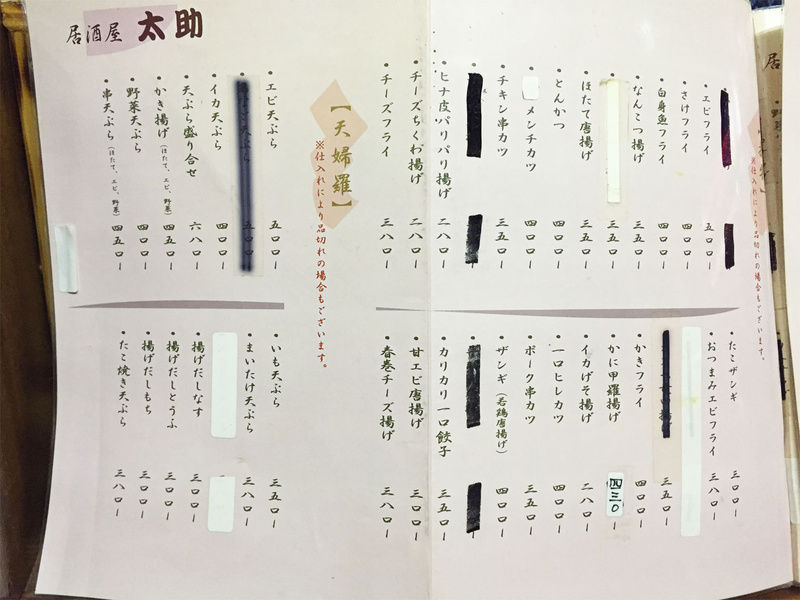 居酒屋 太助
・エビフライ 五〇〇ー
・さけフライ 四〇〇ー
・白身魚フライ 四〇〇ー
・なんこつ揚げ 三五〇ー
三五〇ー
・ほたて唐揚げ 三五〇ー
・とんかつ 四〇〇ー
メンチカツ 四〇〇ー
・チキン串カツ 三五〇ー
・ヒナ皮パリパリ揚げ 二八〇ー
・チーズちくわ揚げ 二八〇ー
・チーズフライ 三八〇ー
・たこザンギ 三五〇ー
・おつまみエビフライ 三八〇ー
三五〇ー
・かきフライ 四〇〇ー
・かに甲羅揚げ 四三〇ー
・イカげそ揚げ 二八〇ー
・一口ヒレカツ 四〇〇ー
・ポーク串カツ 三五〇ー
・ザンギ（若鶏唐揚げ） 四〇〇ー
・カリカリ一口餃子 三五〇ー
・甘エビ唐揚げ 三〇〇ー
・春巻チーズ揚げ 三八〇ー
【天婦羅】
※仕入れにより品切れの場合もございます。
・エビ天ぷら 五〇〇ー
天ぷら 五〇〇ー
・イカ天ぷら 四〇〇ー
・天ぷら盛り合せ 六八〇ー
・かき揚げ（ほたて、エビ、野菜） 四五〇ー
・野菜天ぷら 四〇〇ー
・串天ぷら（ほたて、エビ、野菜） 四五〇ー
・いも天ぷら 三五〇ー
・まいたけ天ぷら 三八〇ー
・揚げだしなす 三〇〇ー
・揚げだしとうふ 三〇〇ー
・揚げだしもち 三〇〇ー
・たこ焼き天ぷら 三八〇ー